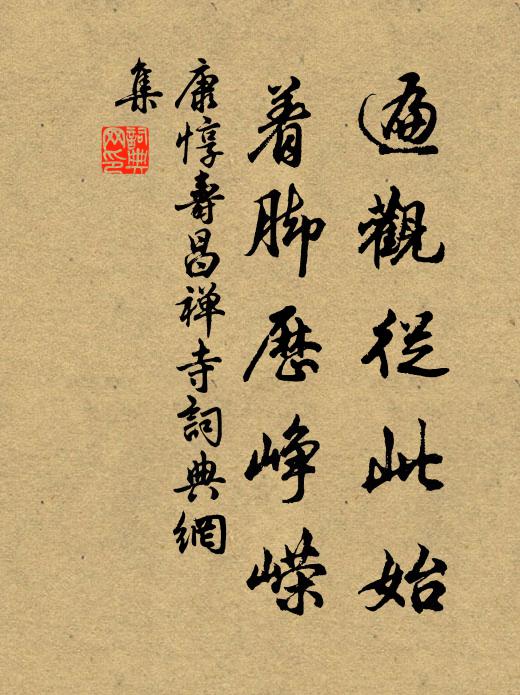 遍觀從此始
着脚歷峥嵘
康惇壽昌禅寺詞典網
集
詞典网印